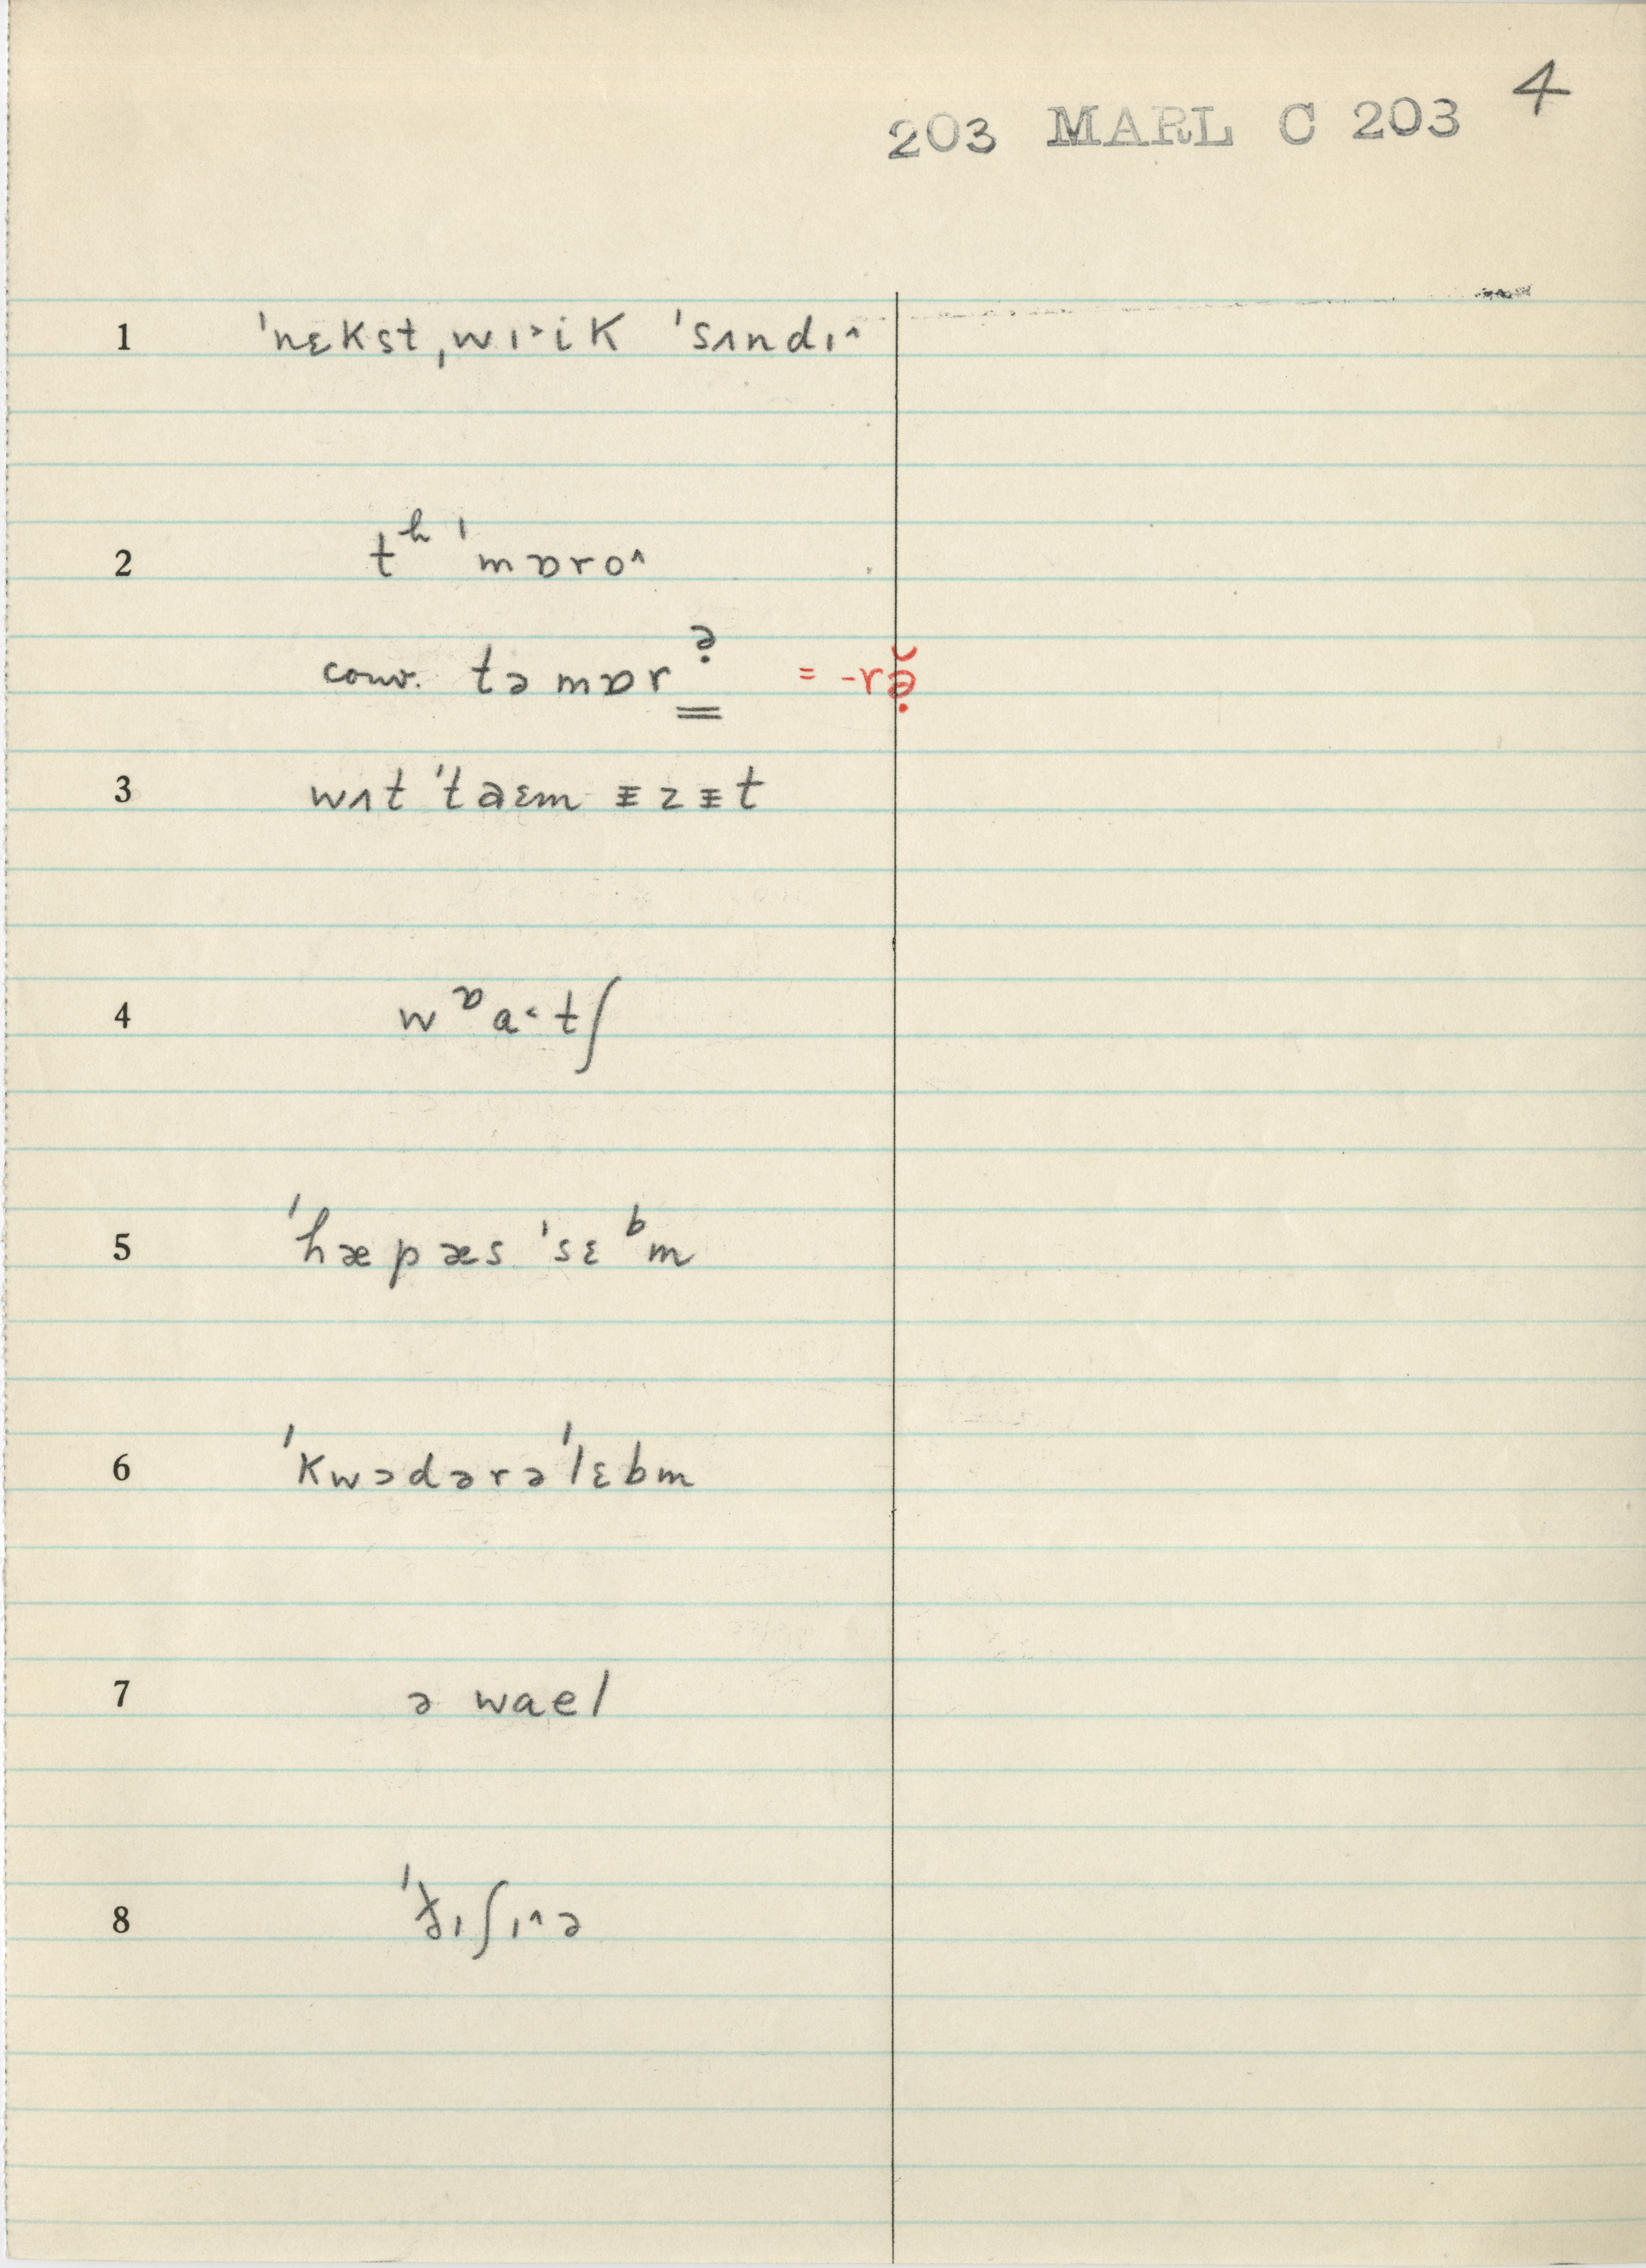 4
203 MARL C 203
1 ˈnɛkst ˌwɪ˃ik ˈsʌndɪ˄
2 tʰ ˈmɒro˄
conv. təmɒrə̣ = -rə̣̆
3 wʌt ˈtaɛm ᵻzᵻt
4 wᶛa˂tʃ
5 ˈhæpæs ˈsɛᵇm
6 ˈkwɔdərəˈlɛbm
7 ə wael
8 ɪʃɪ˄ə